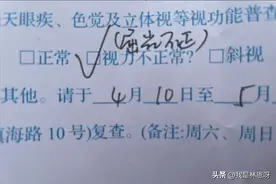 天眼疾、色觉及立体视等视功能普查
(屈光不正)
□正常 √□视力不正常? □斜视
其他。请于 4 月 10 日至 5 月
海路 10 号)复查。(备注:周六、周日
头条 @我是林宸呀